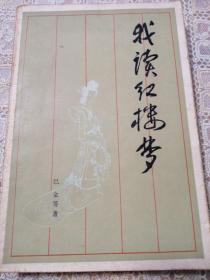 我读红楼梦
巴金等著